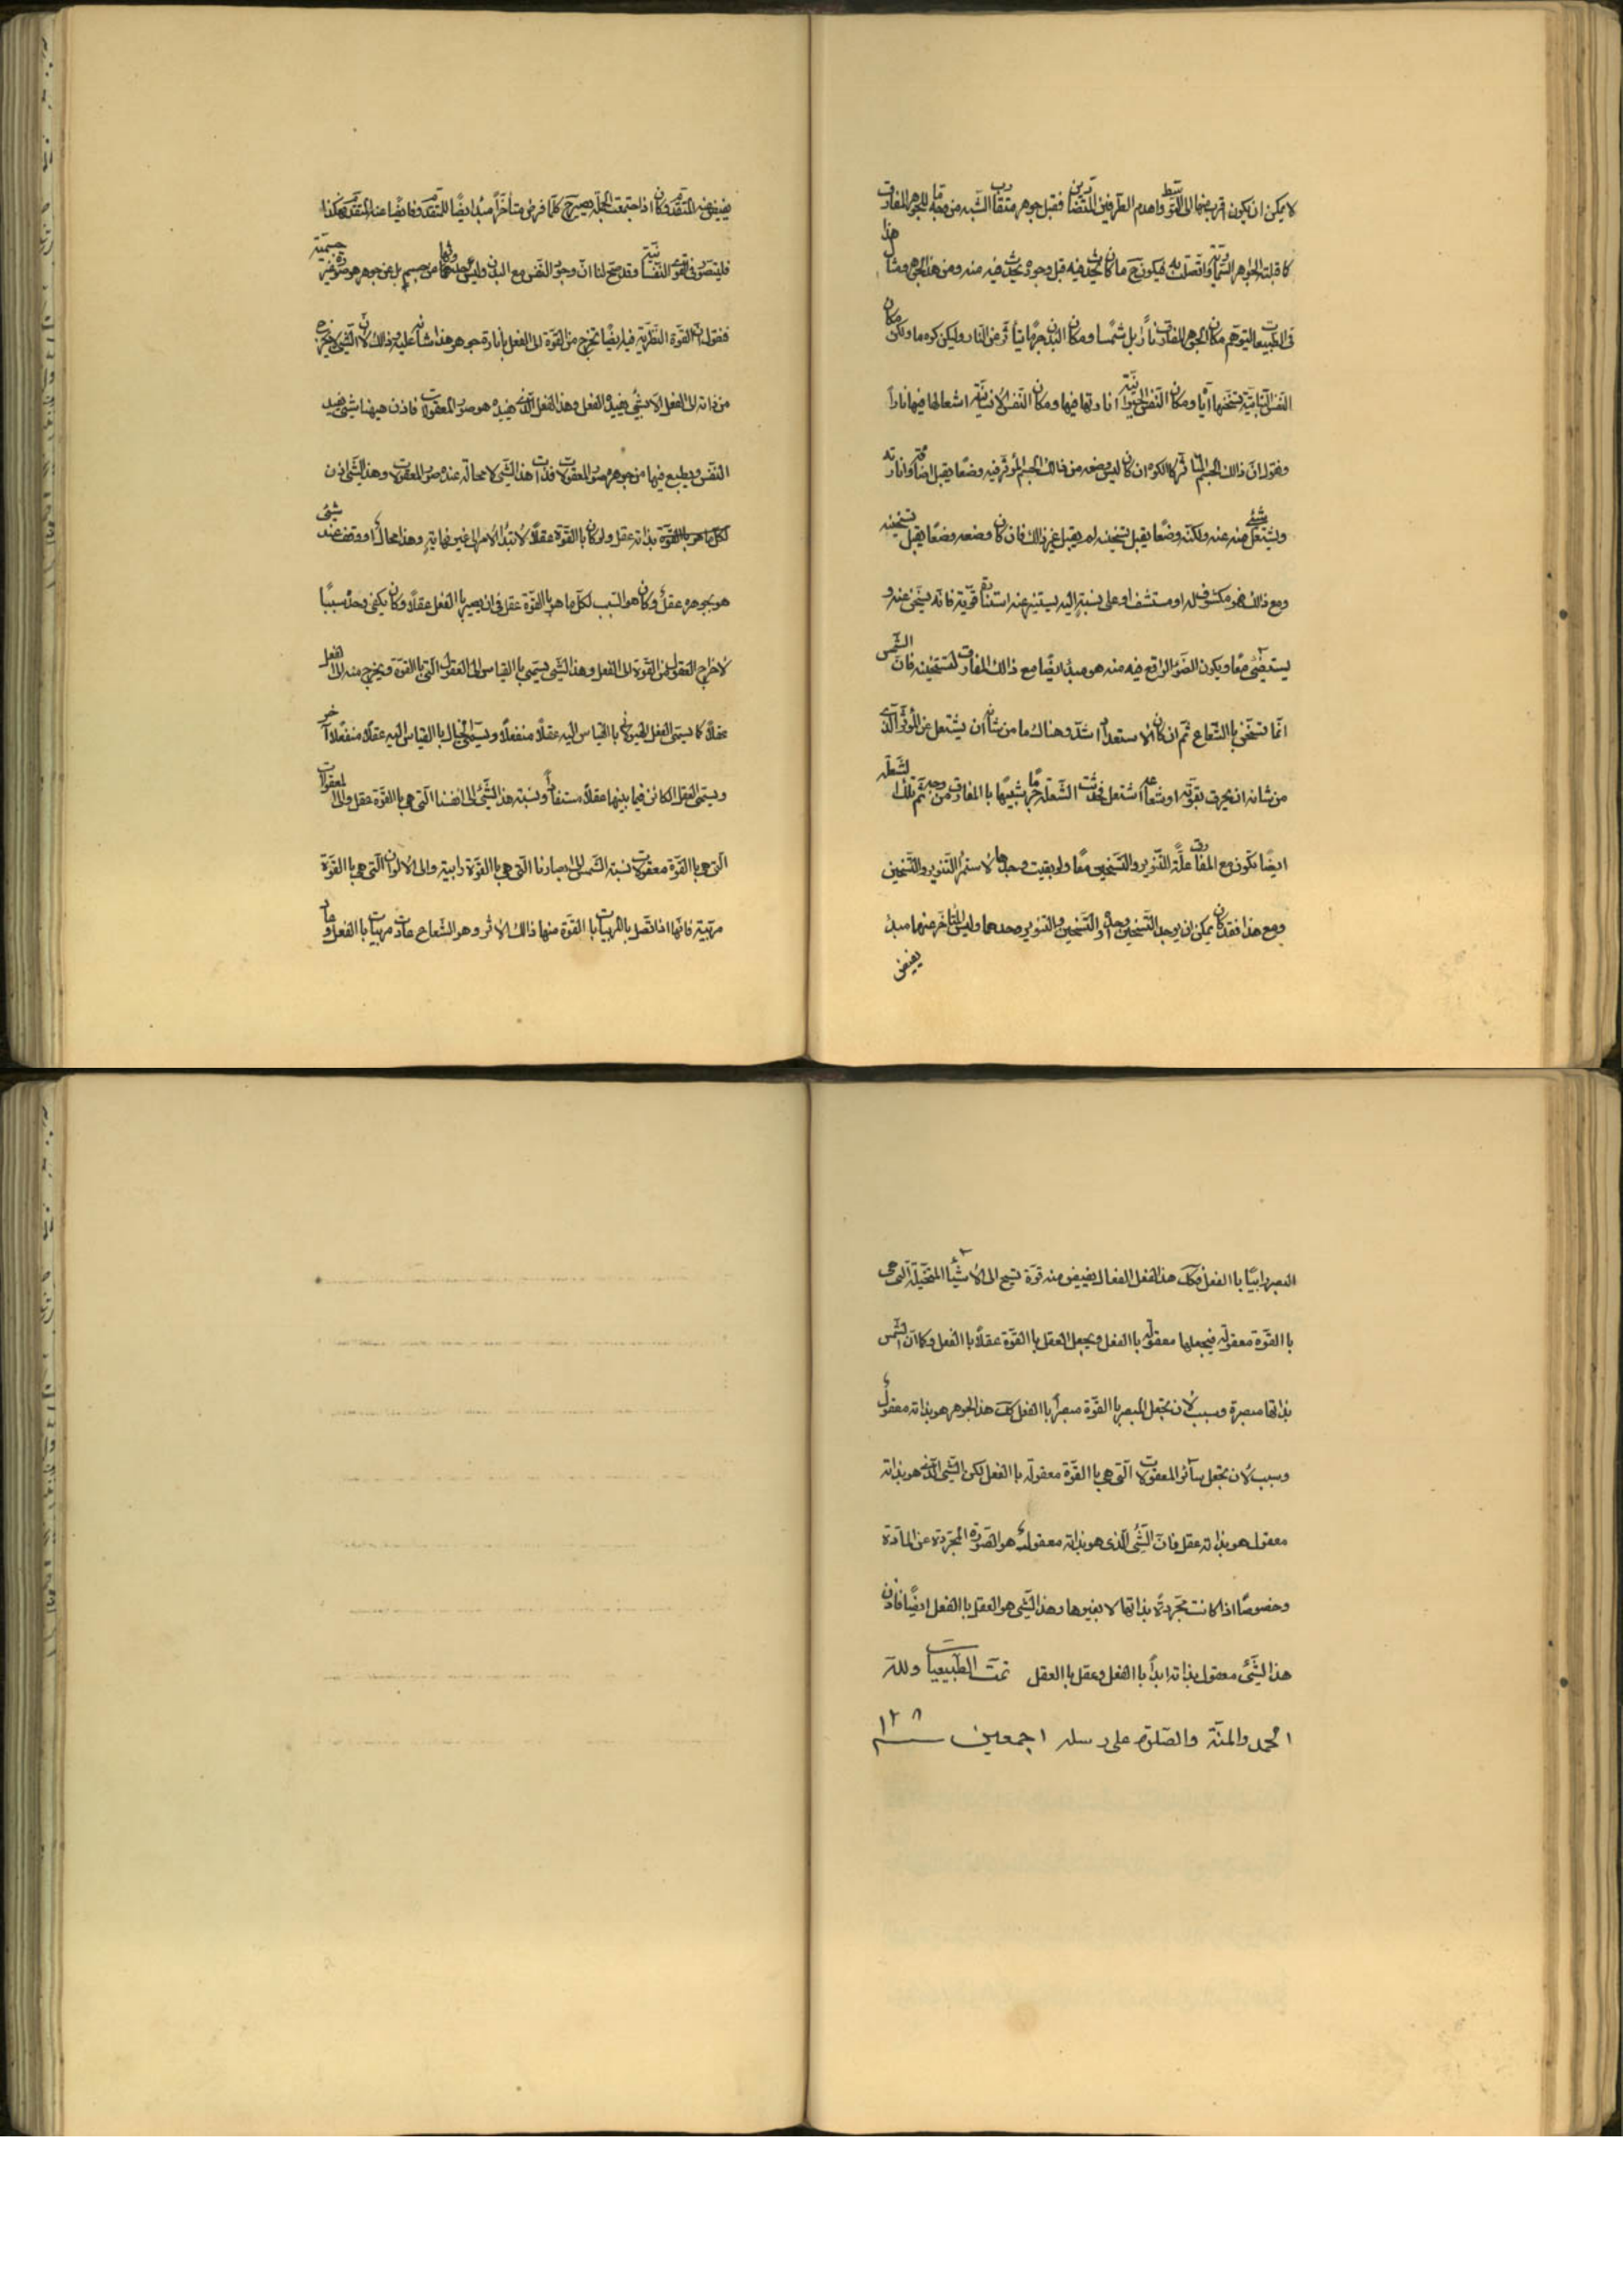 لا يمكن ان يكون اقرب منها الى التوسط واهدم الطرفين المتضادين فقبل جوهر متقارب الشبه من وجه ما للجوهر المفارق
كما قبلته الجواهر السماوية واتصلت به فيكون ح ما كان يحدث فيه قبل وجوده يحدث فيه منه ومن هذا الجوهر ومثال هذا
فى الطبيعيات ليتوهم مكان الجوهر المفارق ناراً بل شمسا ومكان البدن جرمًا يتأثر عن النار وليكن كوه ما وليكن مكان
النفس النباتية تسخينها اياه ومكان النفس الحيوانية انارتها فيها ومكان النفس الانسانية اشعالها فيها ناراً
ونقول ان ذالك الجسم المتأثر كالكوه ان كان ليس وضعه من ذالك الجسم المؤثر فيه وضعًا يقبل اضائته وانارته
ويشتعل شئ منه عنه ولكنه وضعًا يقبل تسخينه لم يقبل غير ذالك فان كان وضعه وضعًا يقبل تسخينه
ومع ذالك فهو مكشوف له او مستشف او على نسبة اليه يستنير عنه استنارة قوية فانه يسخن عنه و
يستضئ معًا ويكون الضوء الواقع فيه منه هو مبدء ايضًا مع ذالك المفارق لتسخينه فان الشمس
انما تسخن باالشعاع ثم ان كان الاستعداد اشد وهناك ما من شأنه ان يشتعل عن المؤثر الذى
من شانه ان يحرق بقوته او شعاعه اشتعل فحدثت الشعلة جرمًا شبيهًا باالمفارق من وجه ثم تلك الشعلة
ايضًا تكون مع المفارق علّة للتنوير والتسخين معًا ولو بقيت وحدها لاستمر التنوير والتسخين
ومع هذا فقد كان يمكن ان يوجد التسخين وحده او التسخين والتنوير وحدهما وليس المتأخر عنهما مبدء
يفيض
يفيض منه المتقدم وكان اذا اجتمعت الجملة يصير ح كلما فرض متأخراً مبدء ايضًا للمتقدم وفايضًا عنه المتقدم فهكذا
فليتصور فى القوى النفسانية وقد صح لنا ان وجود النفس مع البدن وليس حدوثها عن جسم بل عن جوهر هو صورة غير جسمية
فنقول ان القوة النظرية فيه ايضًا تخرج من القوة الى الفعل بانارة جوهر هذا شانه عليه وذالك لان الشئ لا يخرج
من ذاته الى الفعل الا بشئ يفيده الفعل وهذا الفعل الذى يفيده هو صور المعقولات فاذن هيهنا شئ يفيد
النفس ويطبع فيها من جوهره صور المعقولات فذات هذا الشئ لا محالة عنده صور المعقولات وهذا الشئ اذن
بذاته عقل ولو كان باالقوة عقلاً لامتد الامر الى غير نهاية وهذا محال او وقف عند شئ
هو بجوهره عقل وكان هو السبب لكل ما هو باالقوة عقل فى ان يصير باالفعل عقلاً وكان يكفى وحده سببًا
لاخراج العقول من القوة الى الفعل وهذا الشئ يسمى باالقياس الى العقول التى باالقوة ويخرج منه الى الفعل
عقلاً كما يسمى العقل الهيولانى باالقياس اليه عقلاً منفعلاً ويسمى الخيال باالقياس اليه عقلاً منفعلاً آخر
ويسمى العقل الكائن فيما بينها عقلاً مستفاداً ونسبة هذا الشئ الى انفسنا التى هى باالقوة عقل والى المعقولات
التى هى باالقوة معقولات نسبة الشمس الى ابصارنا التى هى باالقوة رائية والى الالوان التى هى باالقوة
مرئية فانها اذا اتصل باالمرئيات باالقوة منها ذالك الاثر وهو الشعاع عادت مرئيات باالفعل وعاد
البصر رائيًا باالفعل فكك هذا العقل الفعال يفيض منه قوة تسيح الى الاشياء المتخيلة التى هى
باالقوة معقولة فيجعلها معقولة باالفعل ويجعل العقل باالقوة عقلاً باالفعل وكما ان الشمس
بذاتها مبصرة وسبب لان يجعل المبصر باالقوة مبصراً باالفعل كك هذا الجوهر هو بذاته معقول
وسبب لان يجعل سائر المعقولات التى هى باالقوة معقولة باالفعل لكن الشئ الذى هو بذاته
معقول هو بذاته عقل فان الشئ الذى هو بذاته معقول هو الصورة المجردة عن المادة
وخصوصًا اذا كانت مجردة بذاتها لا بغيرها وهذا الشئ هو العقل باالفعل ايضًا فاذن
هذا الشئ معقول بذاته ابداً باالفعل وعقل باالعقل تمت الطبيعيات ولله
الحمد والمنة والصلوة على رسله اجمعين سنه ١٢٨